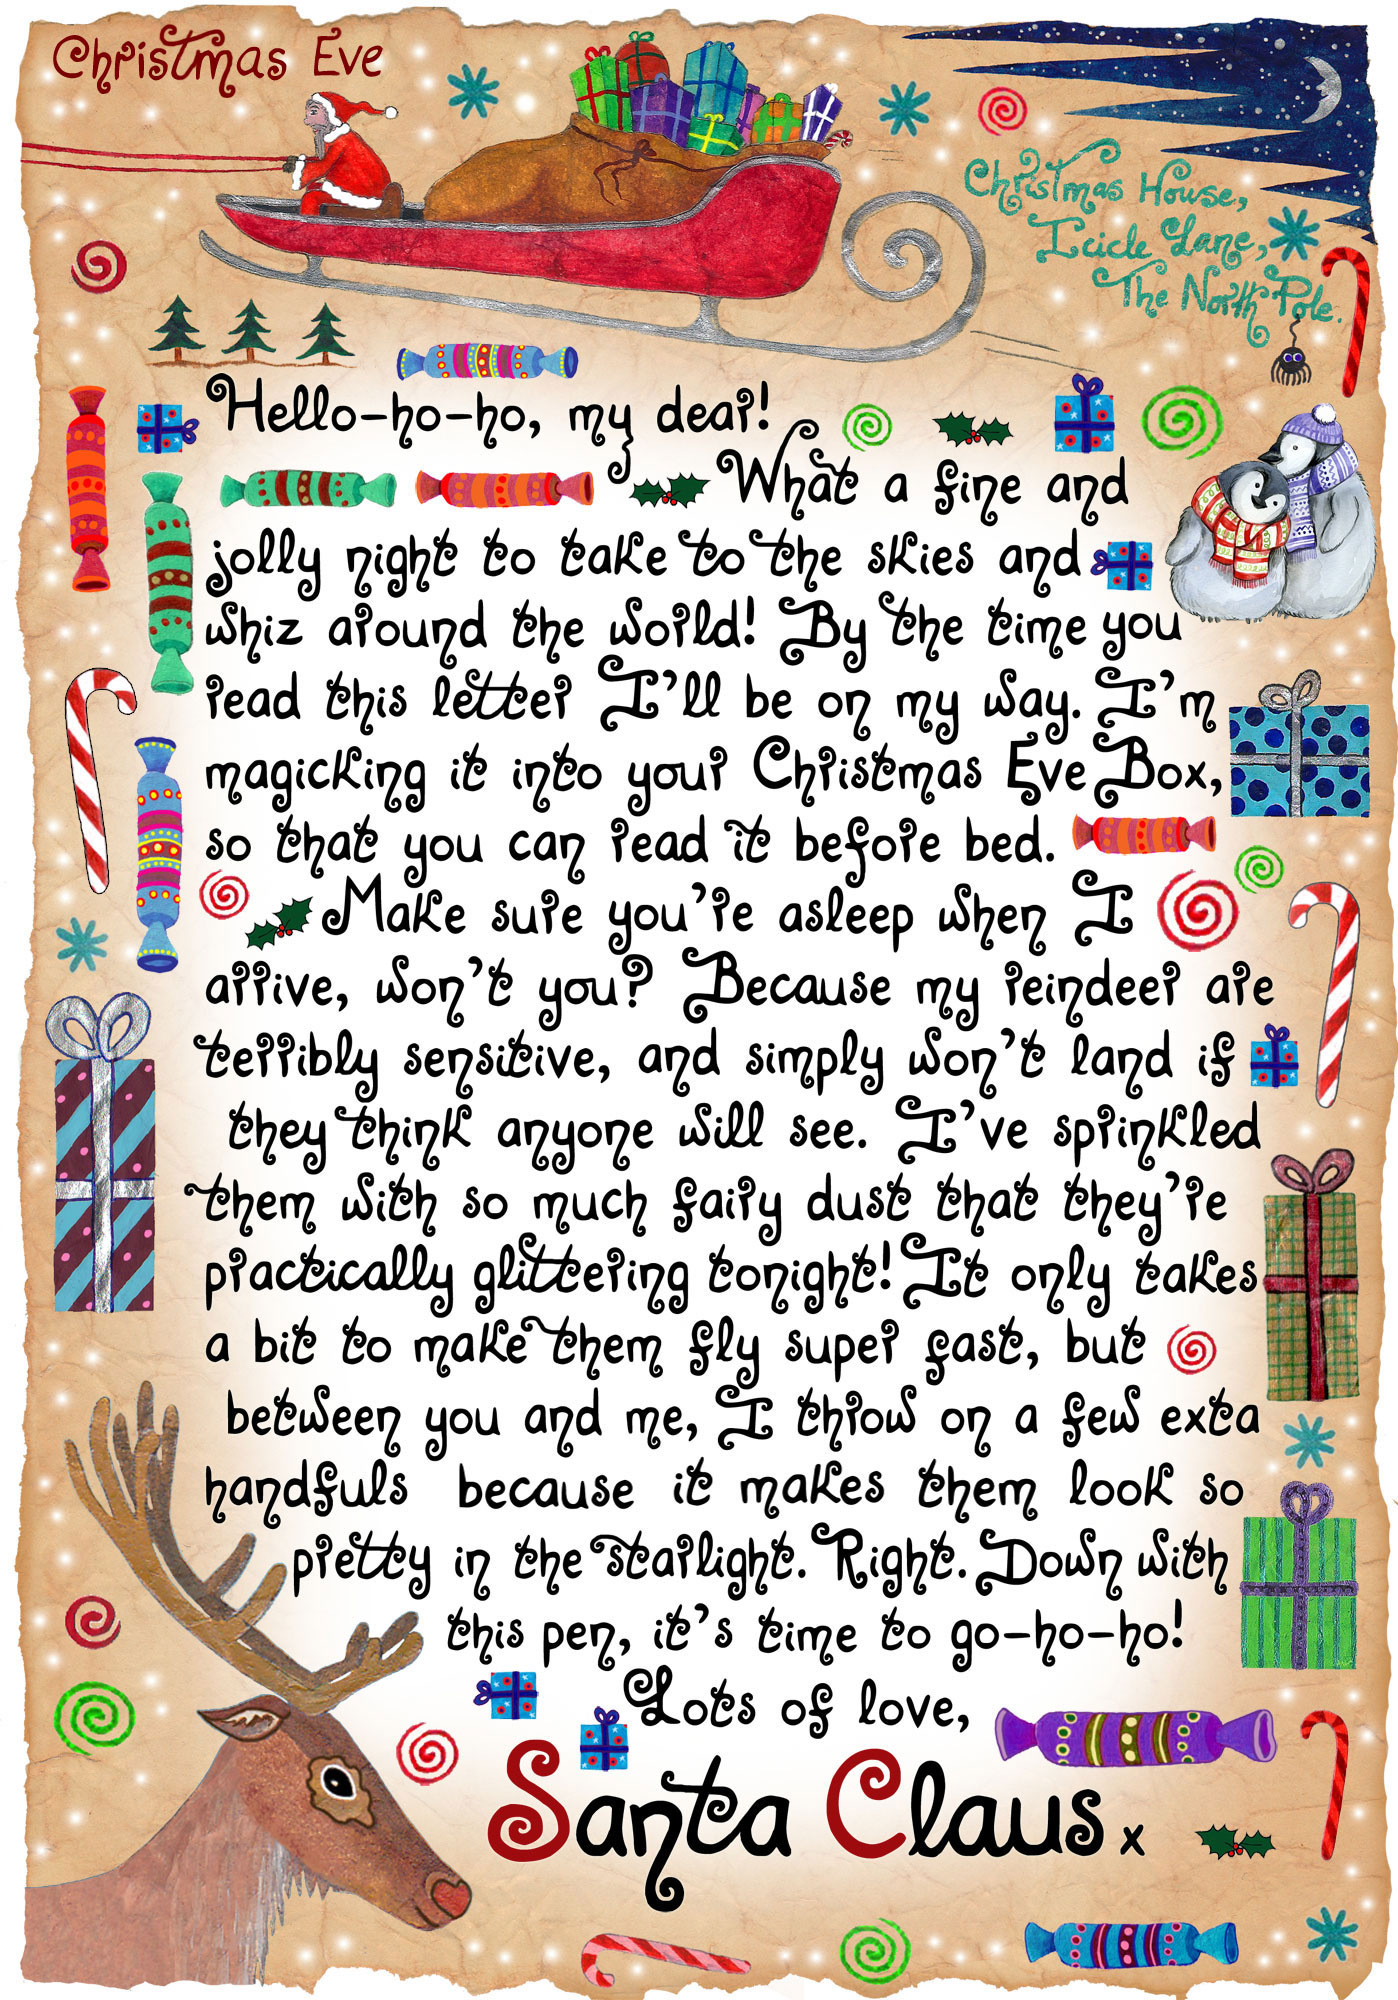 Christmas Eve
Christmas House,
Icicle Lane,
The North Pole.
Hello-ho-ho, my dear!
What a fine and
jolly night to take to the skies and
whiz around the world! By the time you
read this letter I'll be on my way. I'm
magicking it into your Christmas Eve Box,
so that you can read it before bed.
Make sure you're asleep when I
arrive, won't you? Because my reindeer are
terribly sensitive, and simply won't land if
they think anyone will see. I've sprinkled
them with so much fairy dust that they're
practically glittering tonight! It only takes
a bit to make them fly super fast, but
between you and me, I throw on a few exta
handfuls because it makes them look so
pretty in the starlight. Right. Down with
this pen, it's time to go-ho-ho!
Lots of love,
Santa Claus x